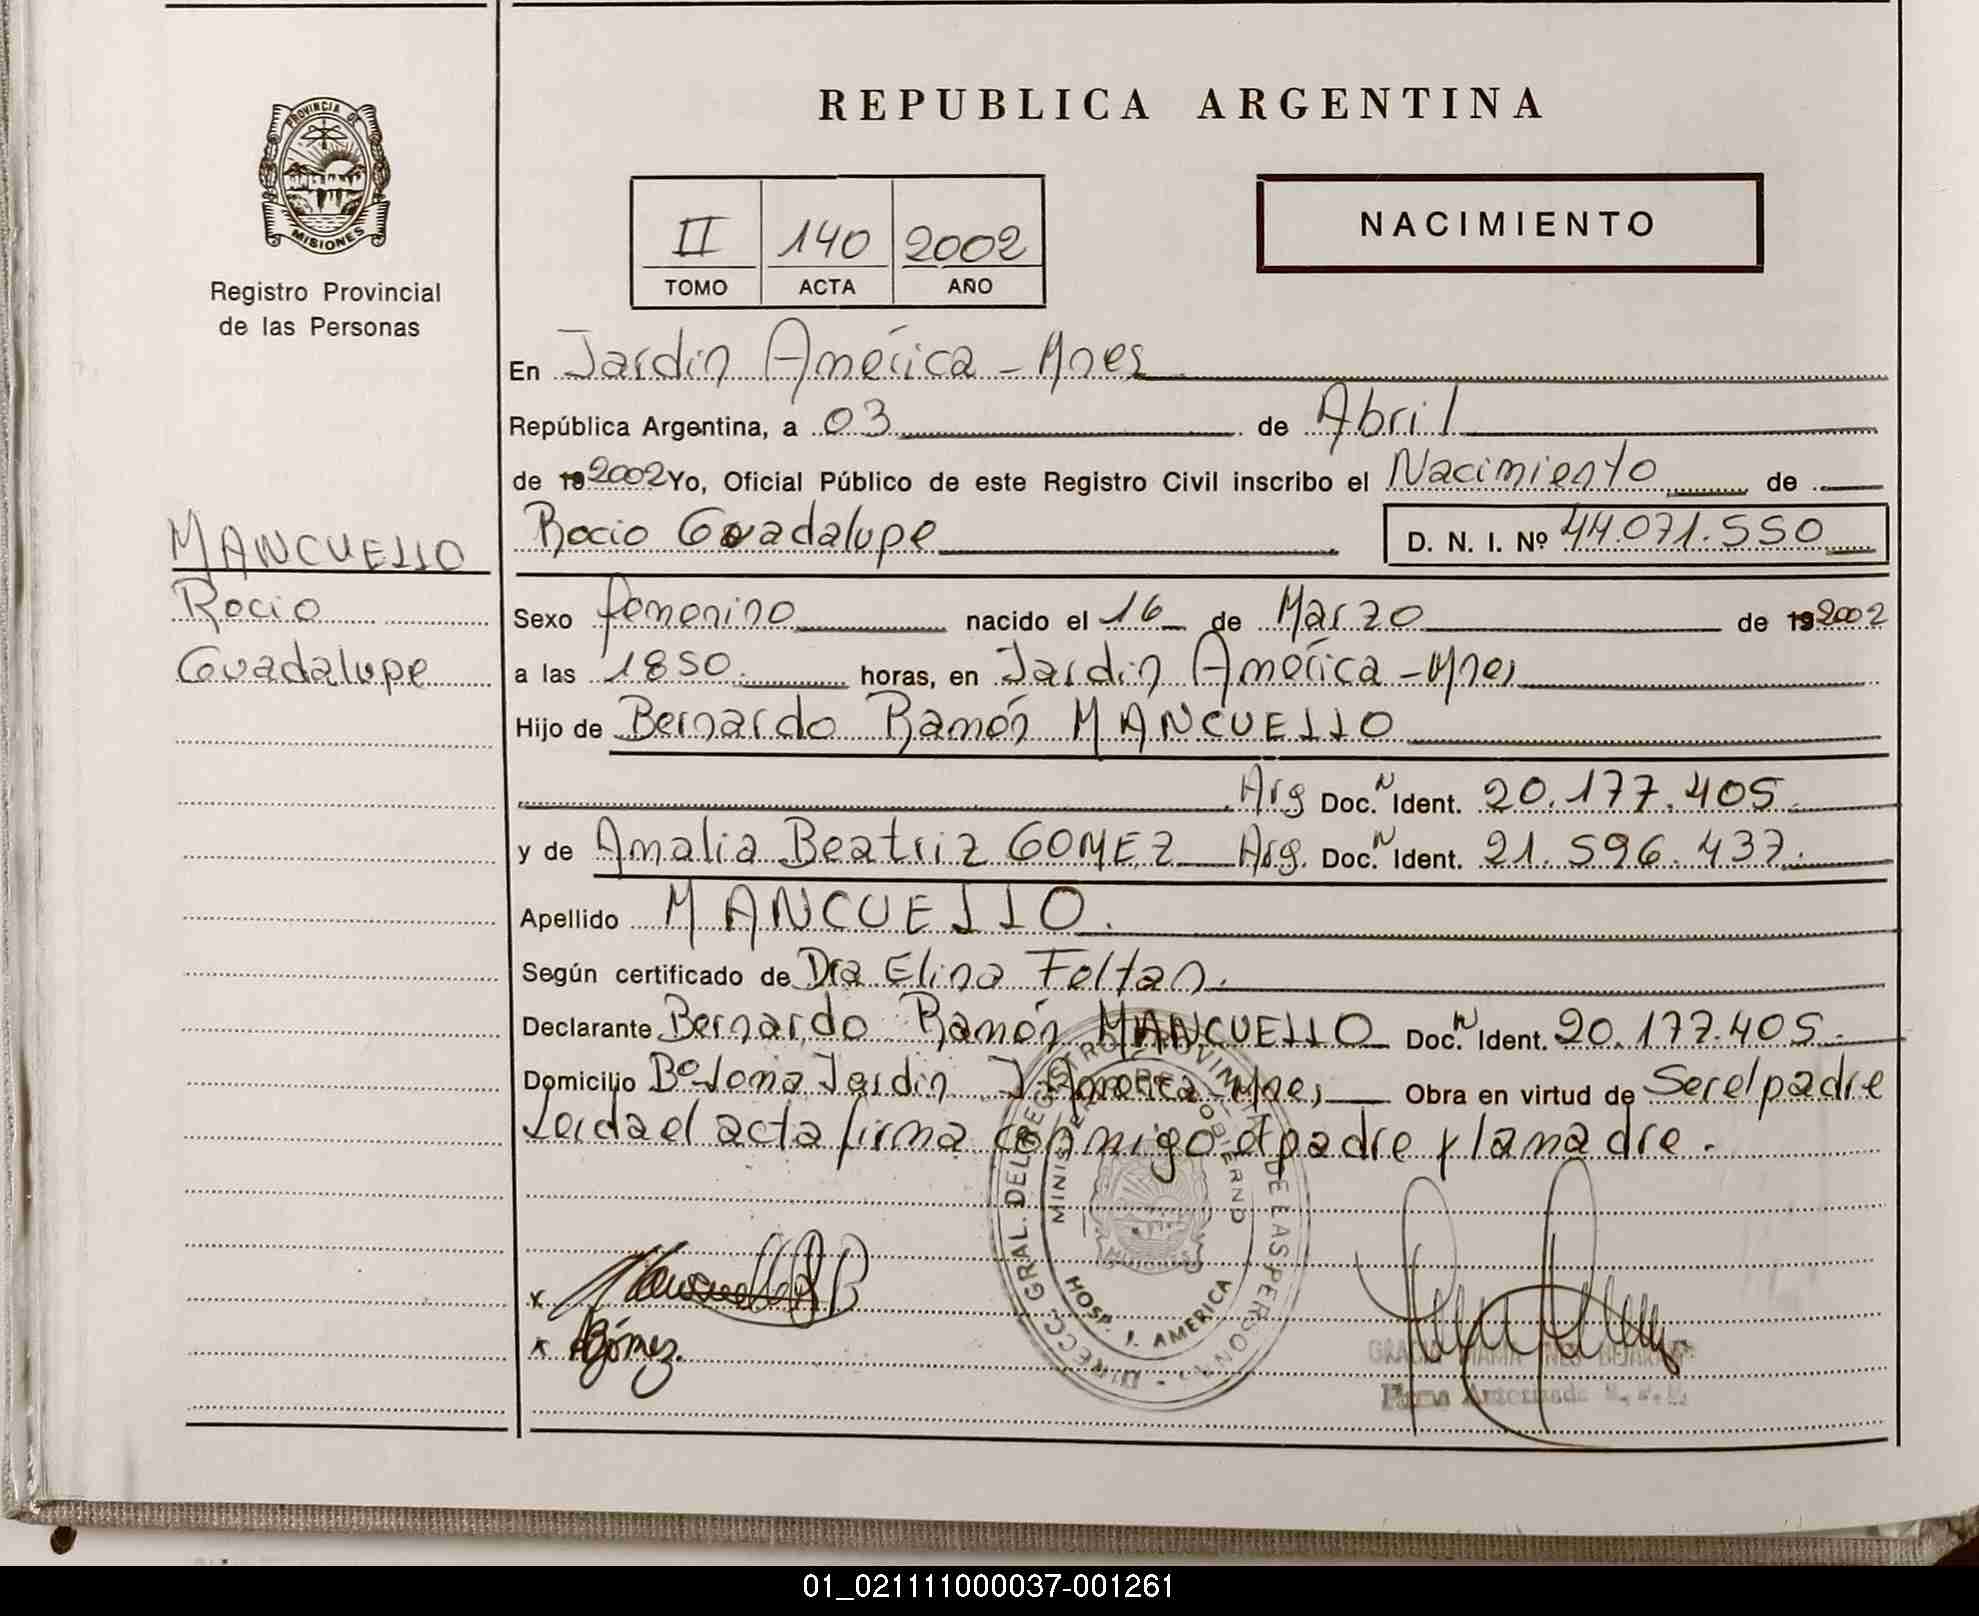 PROVINCIA DE
MISIONES
Registro Provincial
de las Personas
MANCUELLO
Rocio
Guadalupe
REPUBLICA ARGENTINA
II 140 2002
TOMO ACTA AÑO
NACIMIENTO
En Jardin América - Mnes
República Argentina, a 03 de Abril
de 19 2002 Yo, Oficial Público de este Registro Civil inscribo el Nacimiento de
Rocio Guadalupe D. N. I. Nº 44.071.550
Sexo femenino nacido el 16 de Marzo de 19 2002
a las 1850. horas, en Jardin América - Mnes
Hijo de Bernardo Ramón MANCUELLO
Arg Doc. N Ident. 20.177.405.
y de Amalia Beatriz GOMEZ Arg. Doc. N Ident. 21.596.437.
Apellido MANCUELLO.
Según certificado de Dra Elina Feltan.
Declarante Bernardo Ramón MANCUELLO Doc. N Ident. 20.177.405.
Domicilio Bº Loma Jardin J. América - Mnes Obra en virtud de Ser el padre
Leida el acta firma conmigo el padre y la madre.
DIRECC. GRAL. DEL REGISTRO PROVINCIAL DE LAS PERSONAS
MINISTERIO DE GOBIERNO
MISIONES
HOSP. J. AMERICA
x Mancuello R B
x AGómez.
Firma Autorizada
01_021111000037-001261